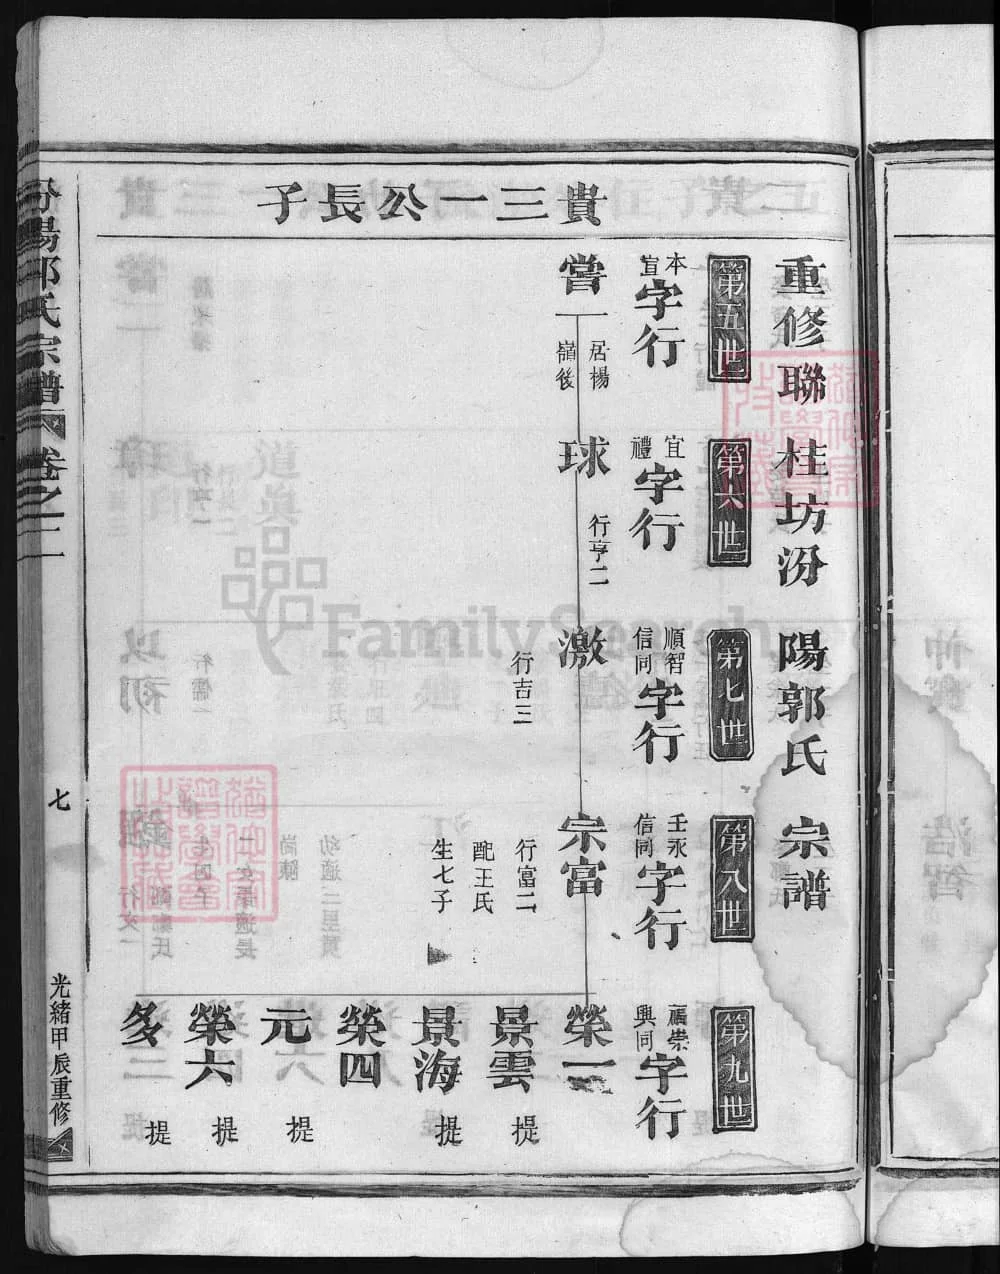 重修聯桂坊汾陽郭氏宗譜
貴三一公長子
第五世
本宣字行
第六世
宜禮字行
第七世
順智信同字行
第八世
壬永信同字行
第九世
福崇興同字行
嘗一
居楊
嶺後
球
行亨二
激
行吉三
宗富
行富二
配王氏
生七子
榮一
景雲
提
景海
提
榮四
元
提
榮六
提
多
提
汾陽郭氏宗譜
卷之二
七
光緒甲辰重修
FamilySearch